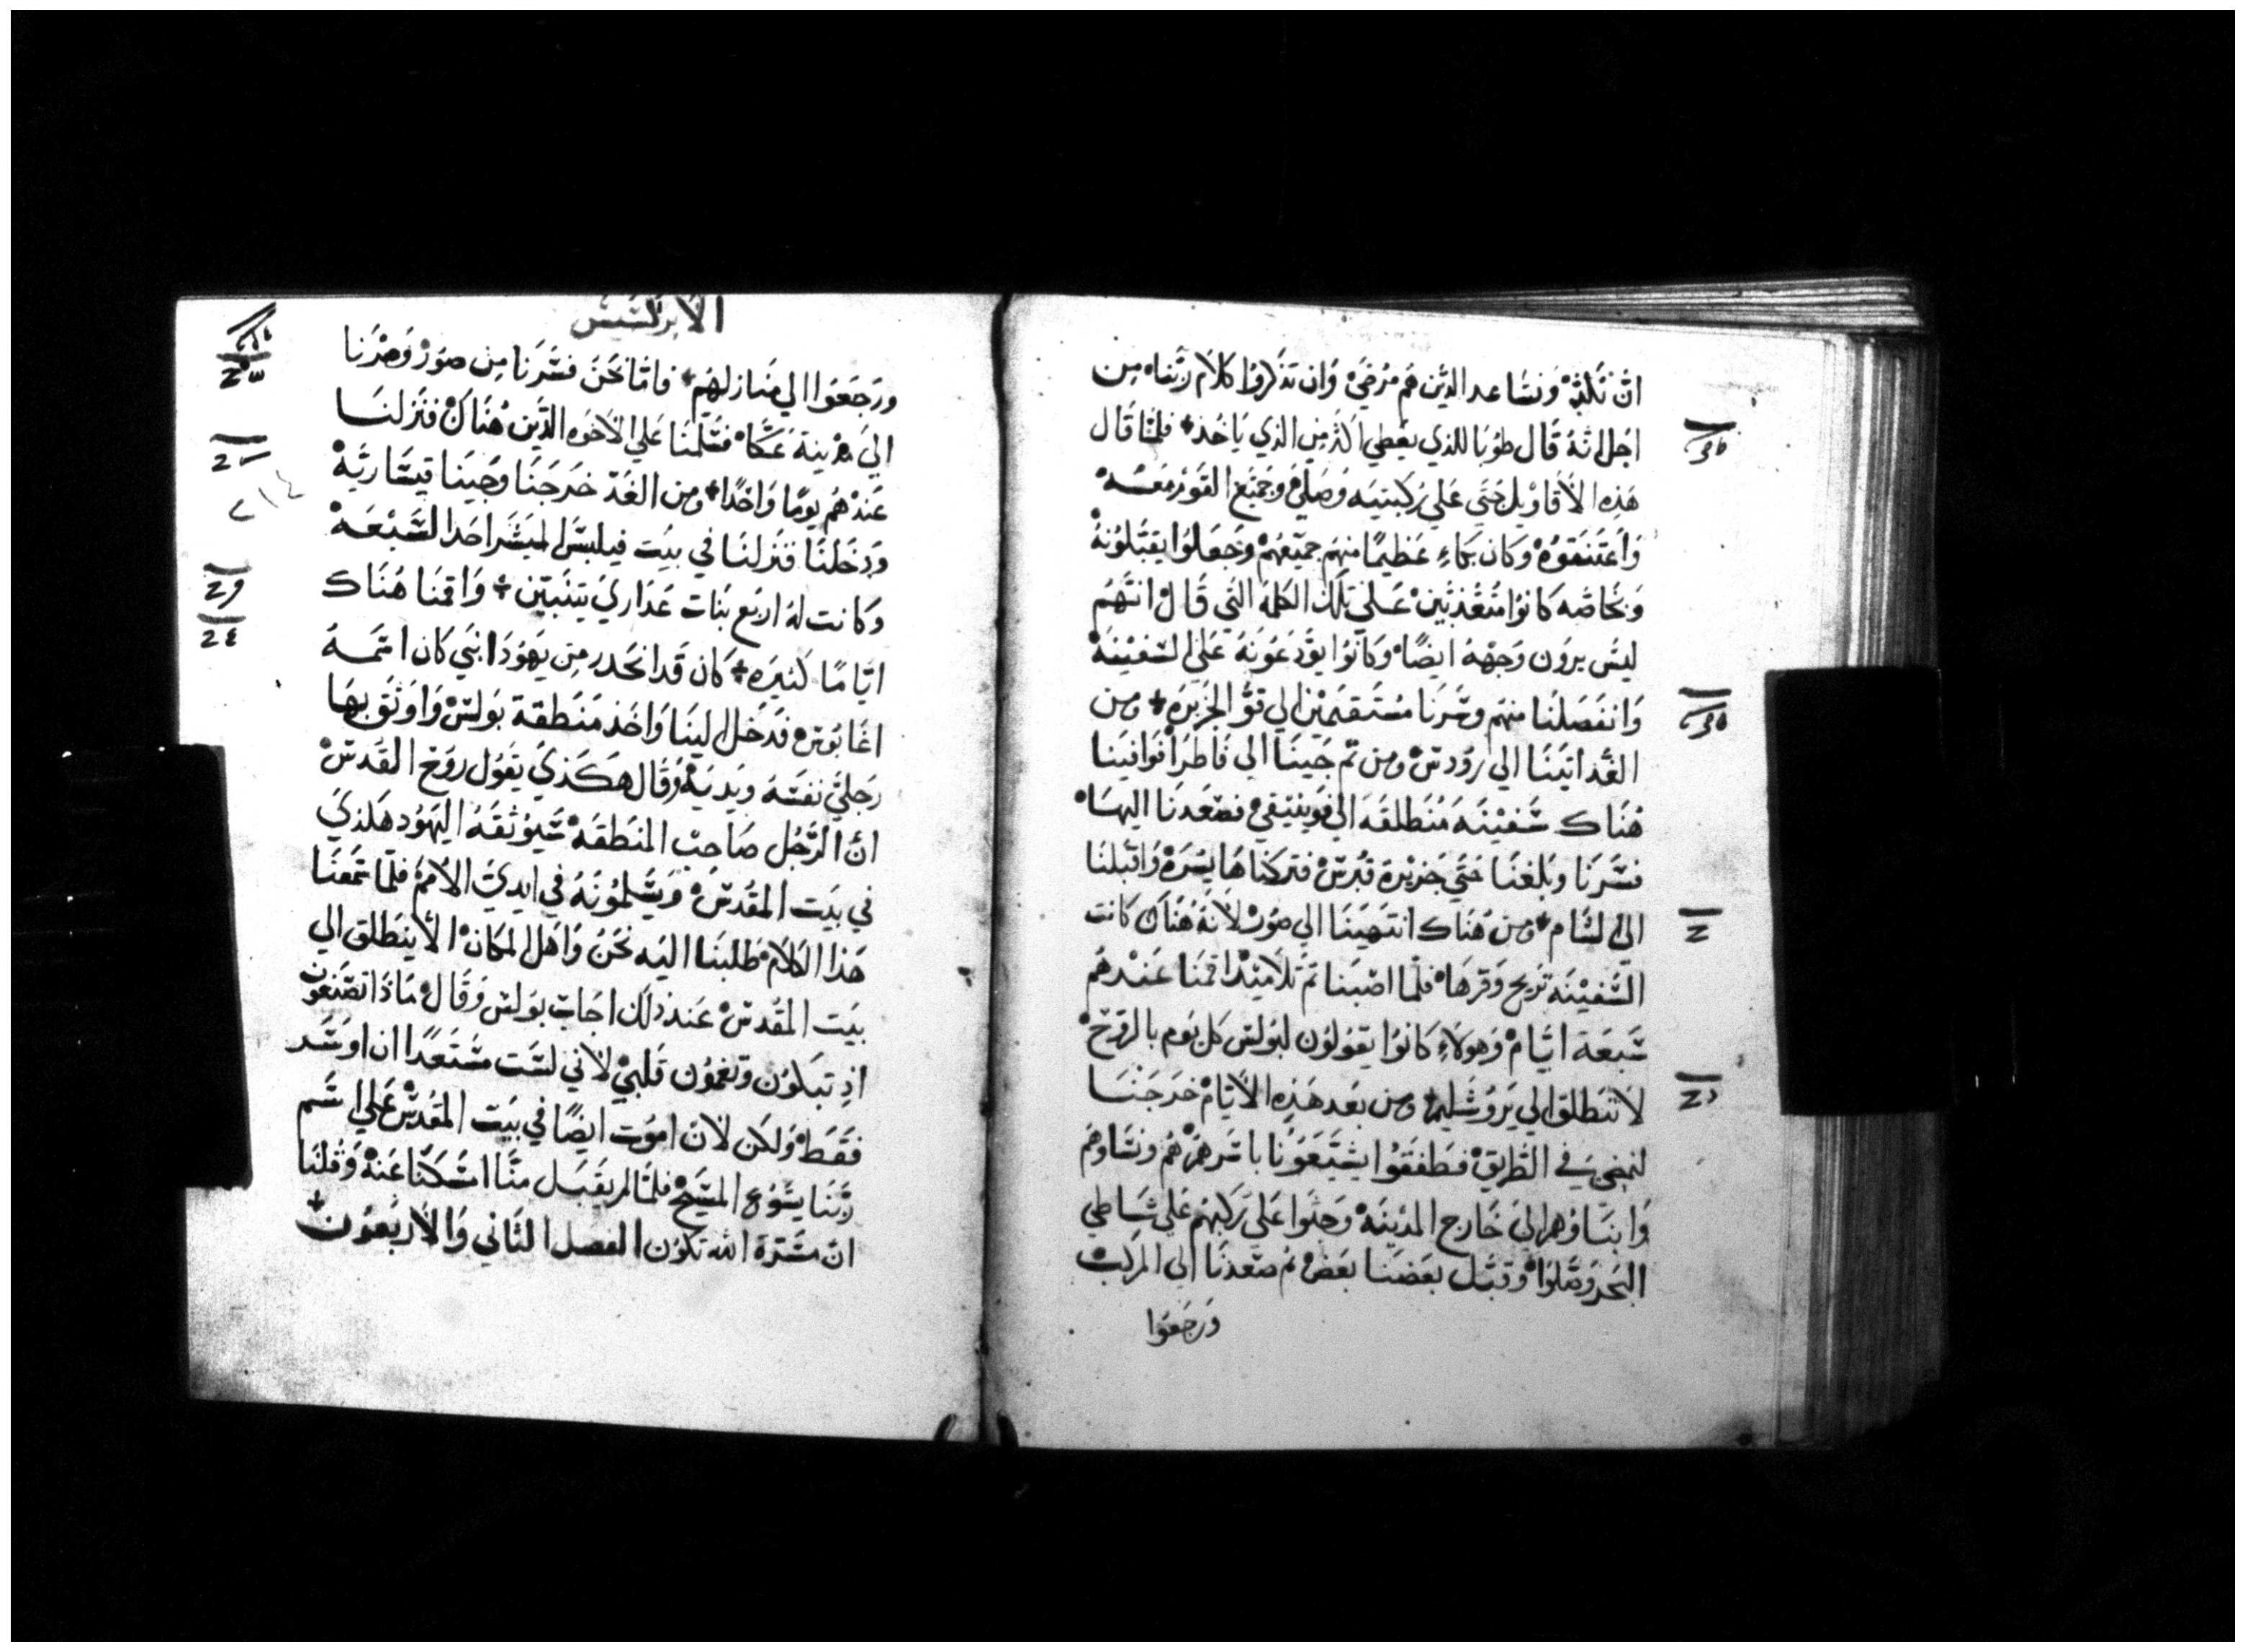 ان نكد ونساعد الذين هم مرضى وان تذكروا كلام ربنا من
اجل انه قال طوبا للذي يعطي اكثر من الذي ياخذ فلما قال
هذه الاقاويل جتي علي ركبتيه وصلي وجميع القوم معه
واعتنقوه وكان بكاء عظيما منهم جميعهم وجعلوا يقبلونه
وبخاصه كانوا متعذبين علي تلك الكلمه التي قال انهم
ليس يرون وجهه ايضا وكانوا يودعونه علي السفينه
وانفصلنا منهم وسرنا مستقيمين الي قو الجزيره ومن
الغد اتينا الي رودس ومن تم جينا الي فاطرا فوافينا
هناك سفينه منطلقه الي فوينيقي فصعدنا اليها
فسرنا وبلغنا حتي جزيرة قبرس فتركناها يسره واقبلنا
الي الشام ومن هناك انتهينا الي صور لانه هناك كانت
السفينه تريح وقرها فلما اصبنا تم تلاميذ اقمنا عندهم
سبعة ايام وهولاء كانوا يقولون لبولس كل يوم بالروح
لا تنطلق الي يروشليم ومن بعد هذه الايام خرجنا
لنمضي في الطريق فطفقوا يشيعونا باسرهم هم ونساوهم
وابناوهم الي خارج المدينه وجثوا علي ركبهم علي شاطي
البحر وصلوا وقبل بعضنا بعض ثم صعدنا الي المركب
ورجعوا
الابركسيس
ورجعوا الي منازلهم فاما نحن فسرنا من صور وصرنا
الي مدينة عكا فسلمنا علي الاخوه الذين هناك فنزلنا
عندهم يوما واحدا ومن الغد خرجنا وجينا قيساريه
ودخلنا فنزلنا في بيت فيلبس المبشر احد السبعه
وكانت له اربع بنات عذاري يتنبين واقمنا هناك
اياما كثيره كان قد انحدر من يهودا نبي كان اسمه
اغابوس فدخل الينا واخذ منطقة بولس واوثق بها
رجلي نفسه ويديه وقال هكذي يقول روح القدس
ان الرجل صاحب المنطقه سيوثقه اليهود هكذي
في بيت المقدس ويسلمونه في ايدي الامم فلما سمعنا
هذا الكلام طلبنا اليه نحن واهل المكان الا ينطلق الي
بيت المقدس عند ذلك اجاب بولس وقال ماذا تصنعون
اذ تبكون وتغمون قلبي لاني لست مستعدا ان اوسر
فقط ولكن لان اموت ايضا في بيت المقدس علي اسم
ربنا يسوع المسيح فلما لم يقبل منا امسكنا عنه وقلنا
ان مسرة الله تكون الفصل الثاني والاربعون